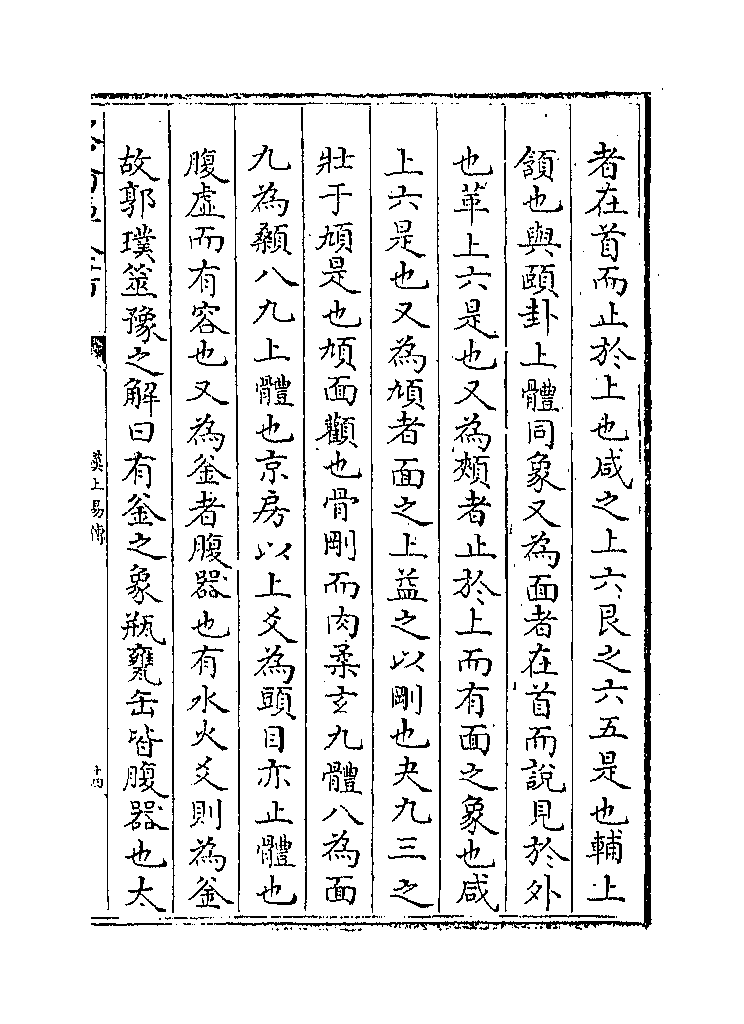 者在首而止於上也咸之上六艮之六五是也輔上
頷也與頤卦上體同象又為面者在首而說見於外
也革上六是也又為頰者止於上而有面之象也咸
上六是也又為頄者面之上益之以剛也夬九三之
壯于頄是也頄面顴也骨剛而肉柔玄九體八為面
九為顙八九上體也京房以上爻為頭目亦止體也
腹虛而有容也又為釜者腹器也有水火爻則為釜
故郭璞筮豫之解曰有釜之象瓶甕缶皆腹器也太
漢上易傳
十四